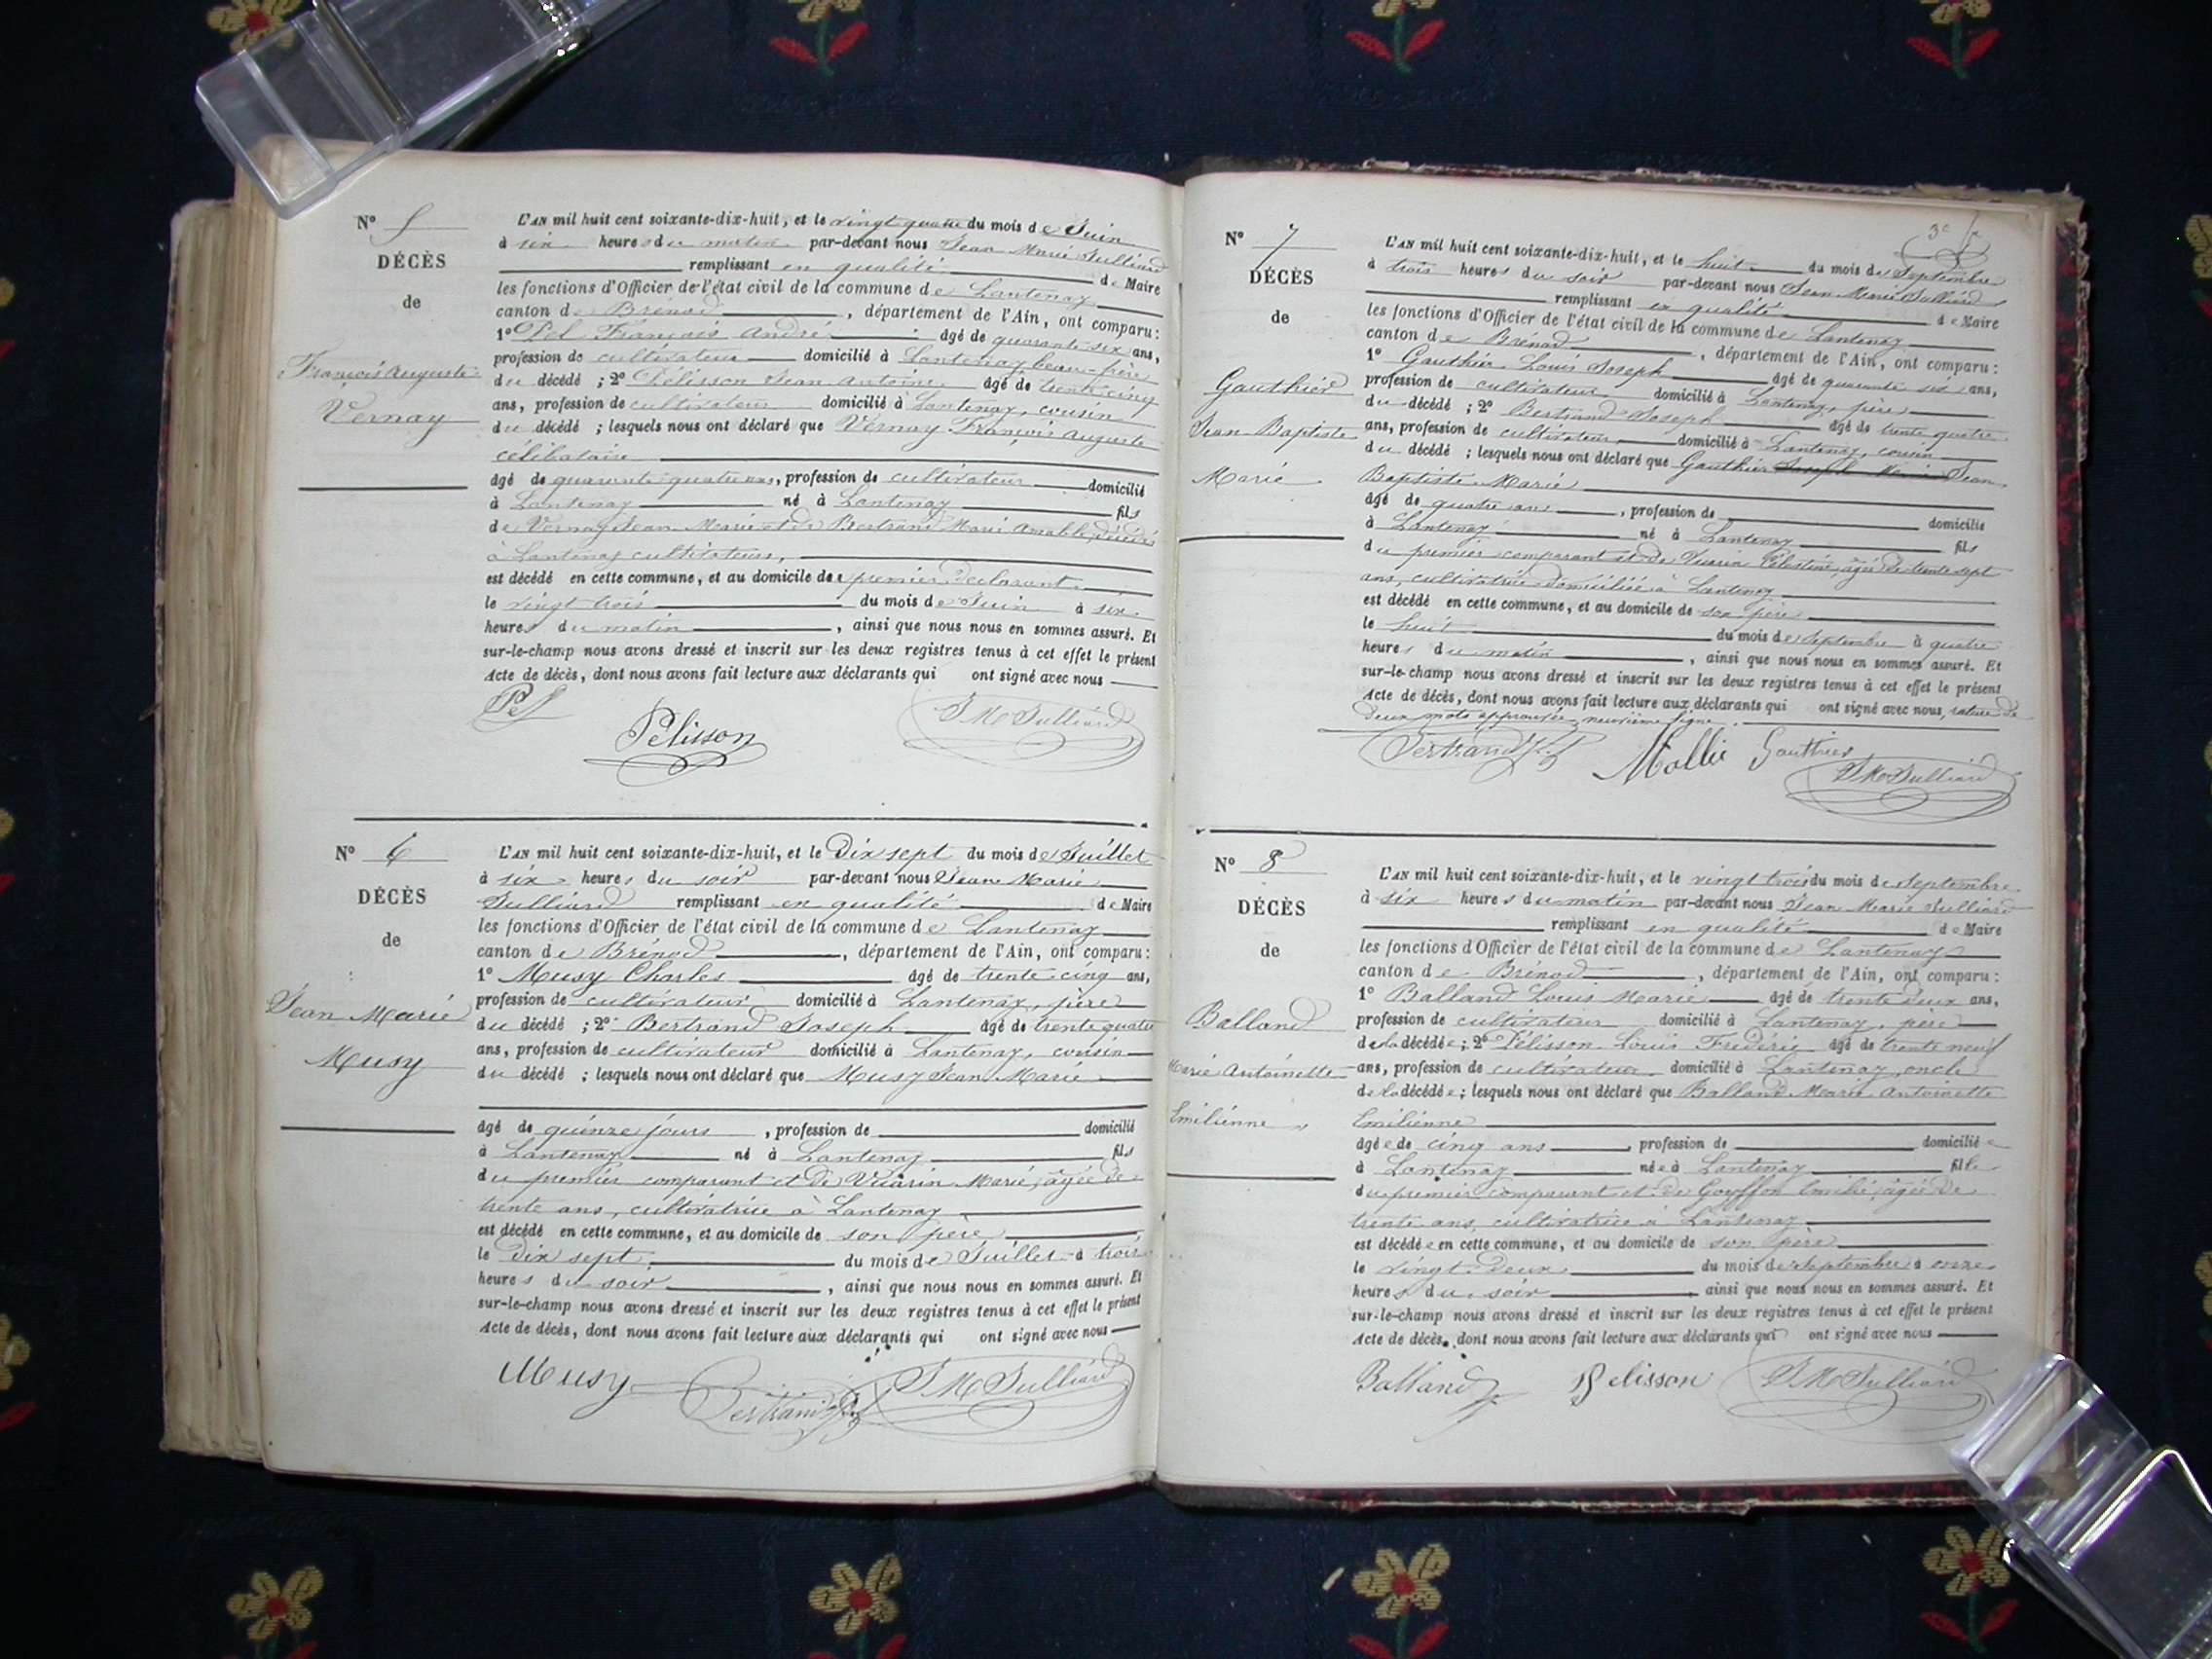 N° 5
DÉCÈS
de
François Auguste
Vernay
L'AN mil huit cent soixante-dix-huit, et le vingt quatre du mois de Juin
à six heures du matin par-devant nous Jean Marie Julliard
remplissant en qualité de Maire
les fonctions d'Officier de l'état civil de la commune de Lantenay
canton de Brénod, département de l'Ain, ont comparu :
1° Pel François André âgé de quarante six ans,
profession de cultivateur domicilié à Lantenay, beau-frère
du décédé ; 2° Pélisson Jean Antoine âgé de trente cinq
ans, profession de cultivateur domicilié à Lantenay, cousin
du décédé ; lesquels nous ont déclaré que Vernay François Auguste
célibataire
âgé de quarante quatre ans, profession de cultivateur domicilié
à Lantenay né à Lantenay fils
de Vernay Jean Marie et de Bertrand Marie Amable, décédés
à Lantenay cultivateurs,
est décédé en cette commune, et au domicile de premier déclarant
le vingt trois du mois de Juin à six
heures du matin, ainsi que nous nous en sommes assuré. Et
sur-le-champ nous avons dressé et inscrit sur les deux registres tenus à cet effet le présent
Acte de décès, dont nous avons fait lecture aux déclarants qui ont signé avec nous
Pel
Pelisson
J M Julliard
N° 6
DÉCÈS
de
Jean Marie
Musy
L'AN mil huit cent soixante-dix-huit, et le Dix sept du mois de Juillet
à six heures du soir par-devant nous Jean Marie
Julliard remplissant en qualité de Maire
les fonctions d'Officier de l'état civil de la commune de Lantenay
canton de Brénod, département de l'Ain, ont comparu :
1° Musy Charles âgé de trente cinq ans,
profession de cultivateur domicilié à Lantenay, père
du décédé ; 2° Bertrand Joseph âgé de trente quatre
ans, profession de cultivateur domicilié à Lantenay, cousin
du décédé ; lesquels nous ont déclaré que Musy Jean Marie
âgé de quinze jours, profession de domicilié
à Lantenay né à Lantenay fils
du premier comparant et de Vuarin Marie, âgée de
trente ans, cultivatrice à Lantenay
est décédé en cette commune, et au domicile de son père
le Dix sept du mois de Juillet à trois
heures du soir, ainsi que nous nous en sommes assuré. Et
sur-le-champ nous avons dressé et inscrit sur les deux registres tenus à cet effet le présent
Acte de décès, dont nous avons fait lecture aux déclarants qui ont signé avec nous
Musy
Bertrand
J M Julliard
3e f
N° 7
DÉCÈS
de
Gauthier
Jean Baptiste
Marie
L'AN mil huit cent soixante-dix-huit, et le huit du mois de Septembre
à trois heures du soir par-devant nous Jean Marie Julliard
remplissant en qualité de Maire
les fonctions d'Officier de l'état civil de la commune de Lantenay
canton de Brénod, département de l'Ain, ont comparu :
1° Gauthier Louis Joseph âgé de quarante six ans,
profession de cultivateur domicilié à Lantenay, père
du décédé ; 2° Bertrand Joseph âgé de trente quatre
ans, profession de cultivateur domicilié à Lantenay, cousin
du décédé ; lesquels nous ont déclaré que Gauthier Joseph Marie Jean
Baptiste Marie
âgé de quatre ans, profession de domicilié
à Lantenay né à Lantenay fils
du premier comparant et de Vuarin Célestine, âgée de trente sept
ans, cultivatrice domiciliée à Lantenay
est décédé en cette commune, et au domicile de son père
le huit du mois de Septembre à quatre
heures du matin, ainsi que nous nous en sommes assuré. Et
sur-le-champ nous avons dressé et inscrit sur les deux registres tenus à cet effet le présent
Acte de décès, dont nous avons fait lecture aux déclarants qui ont signé avec nous, rature de
deux mots approuvée, neuvième ligne.
Bertrand
Mollie
Gauthier
J M Julliard
N° 8
DÉCÈS
de
Balland
Marie Antoinette
Emilienne
L'AN mil huit cent soixante-dix-huit, et le vingt trois du mois de Septembre
à six heures du matin par-devant nous Jean Marie Julliard
remplissant en qualité de Maire
les fonctions d'Officier de l'état civil de la commune de Lantenay
canton de Brénod, département de l'Ain, ont comparu :
1° Balland Louis Marie âgé de trente deux ans,
profession de cultivateur domicilié à Lantenay, père
de la décédée ; 2° Pélisson Louis Frederic âgé de trente neuf
ans, profession de cultivateur domicilié à Lantenay, oncle
de la décédée ; lesquels nous ont déclaré que Balland Marie Antoinette
Emilienne
âgée de cinq ans, profession de domiciliée
à Lantenay née à Lantenay fille
du premier comparant et de Goyffon Emilie, âgée de
trente ans, cultivatrice à Lantenay
est décédée en cette commune, et au domicile de son père
le vingt deux du mois de Septembre à onze
heures du soir, ainsi que nous nous en sommes assuré. Et
sur-le-champ nous avons dressé et inscrit sur les deux registres tenus à cet effet le présent
Acte de décès, dont nous avons fait lecture aux déclarants qui ont signé avec nous
Balland
Pelisson
J M Julliard